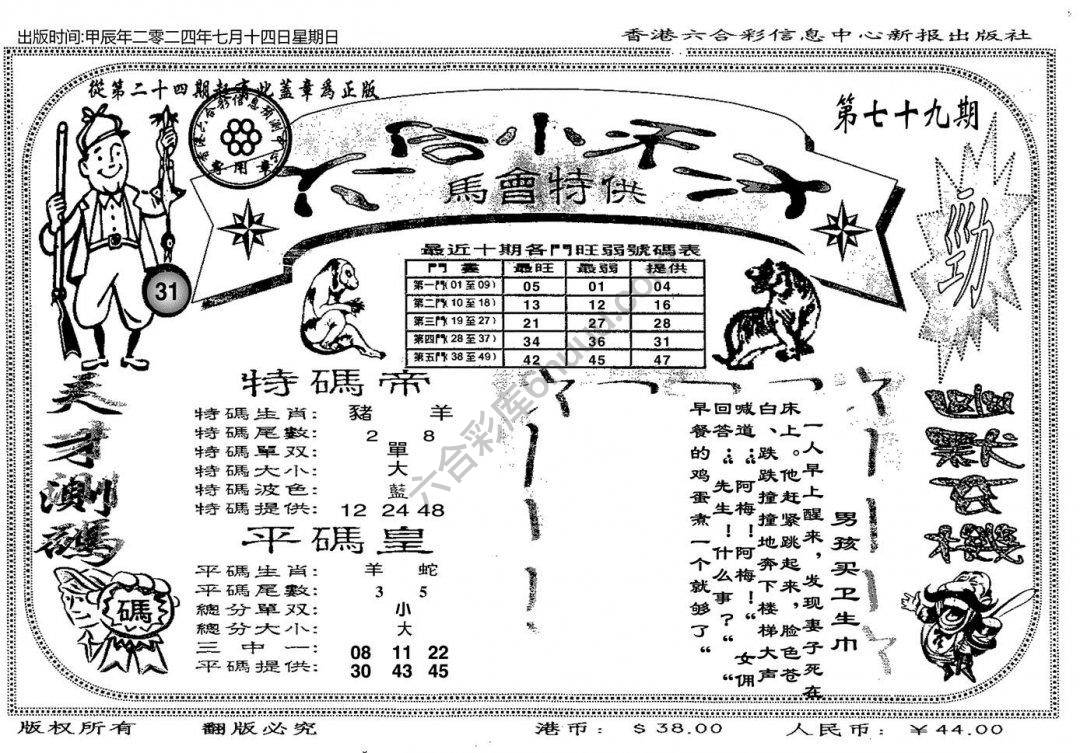 出版时间:甲辰年二零二四年七月十四日星期日
香港六合彩信息中心新报出版社
從第二十四期起憑此蓋章爲正版
第七十九期
六合小禾二才
馬會特供
專用章
31
勁
最近十期各門旺弱號碼表
門畫 最旺 最弱 提供
第一門(01至09) 05 01 04
第二門(10至18) 13 12 16
第三門(19至27) 21 27 28
第四門(28至37) 34 36 31
第五門(38至49) 42 45 47
天才測碼
碼
特碼帝
特碼生肖: 豬 羊
特碼尾數: 2 8
特碼單双: 單
特碼大小: 大
特碼波色: 藍
特碼提供: 12 24 48
平碼皇
平碼生肖: 羊 蛇
平碼尾數: 3 5
總分單双: 小
總分大小: 大
三中一: 08 11 22
平碼提供: 30 43 45
男孩买卫生巾
一人早上醒来，发现妻子死在
床上。他赶紧跳起来，脸色苍
白、跌跌撞撞地奔下楼梯大声
喊道：“阿梅！阿梅！”女佣
回答：“先生！什么事？”“
早餐的鸡蛋煮一个就够了”
幽默玄機
六合彩库6huuu.com
版权所有
翻版必究
港币: $ 38.00
人民币: ¥ 44.00